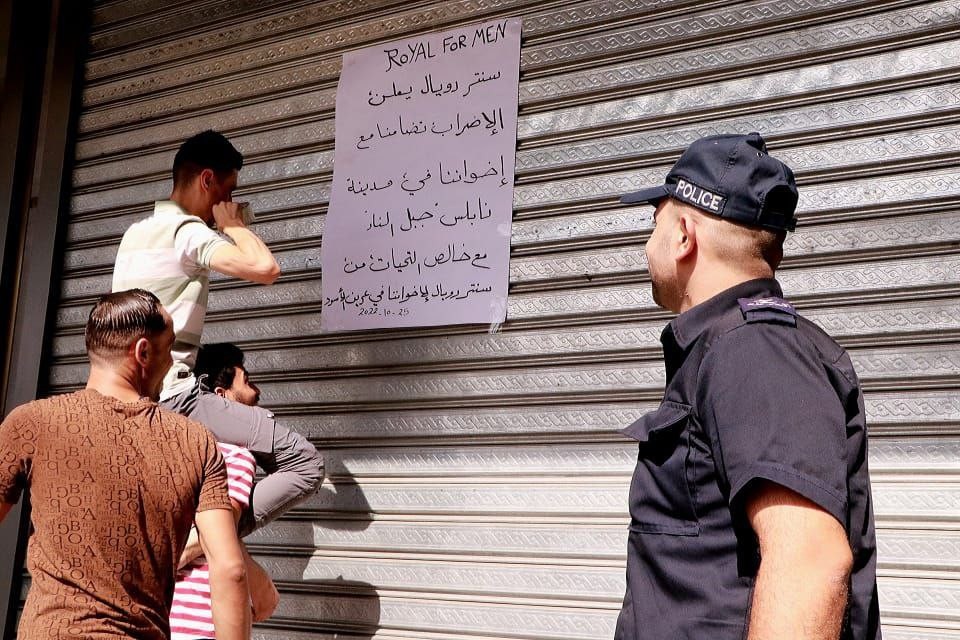 ROYAL FOR MEN
سنتر رويال يعلن
الإضراب تضامنا مع
إخواننا في مدينة
نابلس "جبل النار"
مع خالص التحيات من
سنتر رويال لإخواننا في عرين الأسود
2022-10-25
POLICE